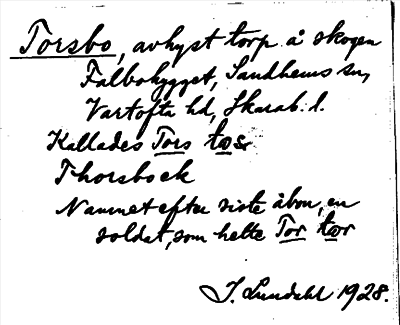 Torsbo, avhyst torp å skogen
Falbohygget, Sandhems sn,
Vartofta hd, Skarab. l.
Kallades Tors tors
Thorsbock
Namnet efter siste åbon, en
soldat, som hette Tor tor
J. Lundahl 1928.